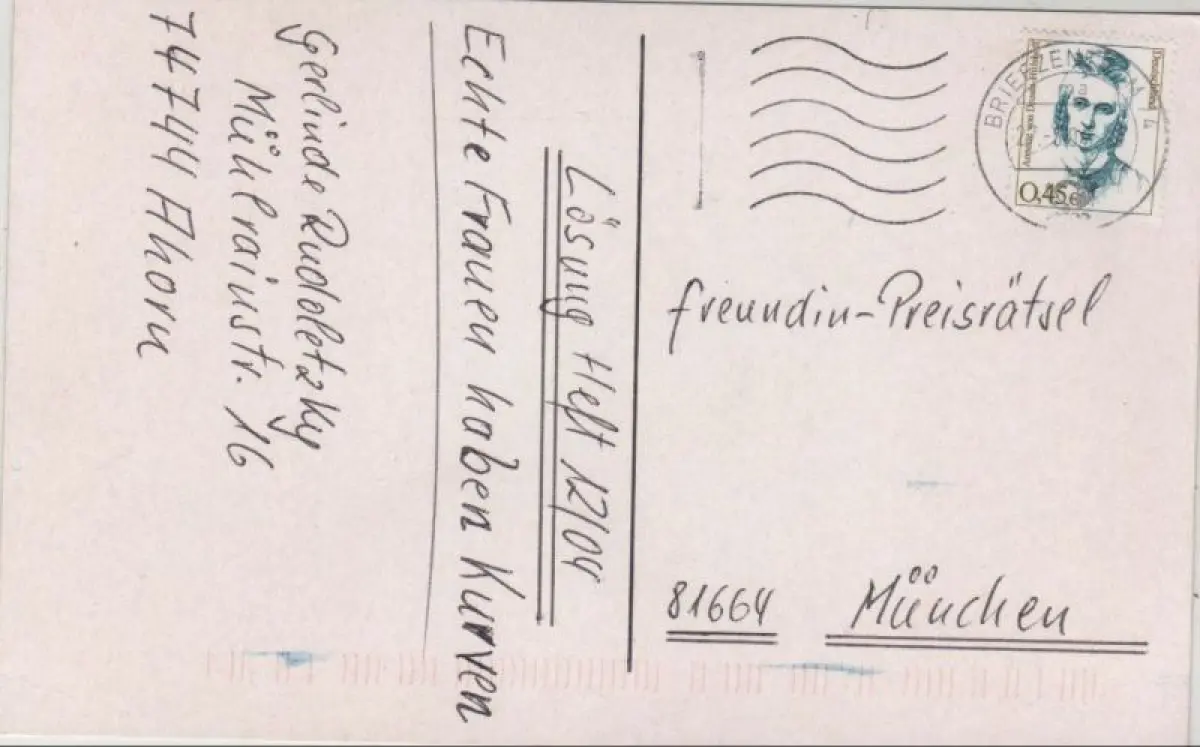 Lösung Heft 12/04
Echte Frauen haben Kurven
Gerlinde Rudoletzky
Mühlrainstr. 16
74744 Ahorn
freundin-Preisrätsel
81664 München
BRIEFZENTRUM
Deutschland
Annette von Droste-Hülshoff
0,45 €